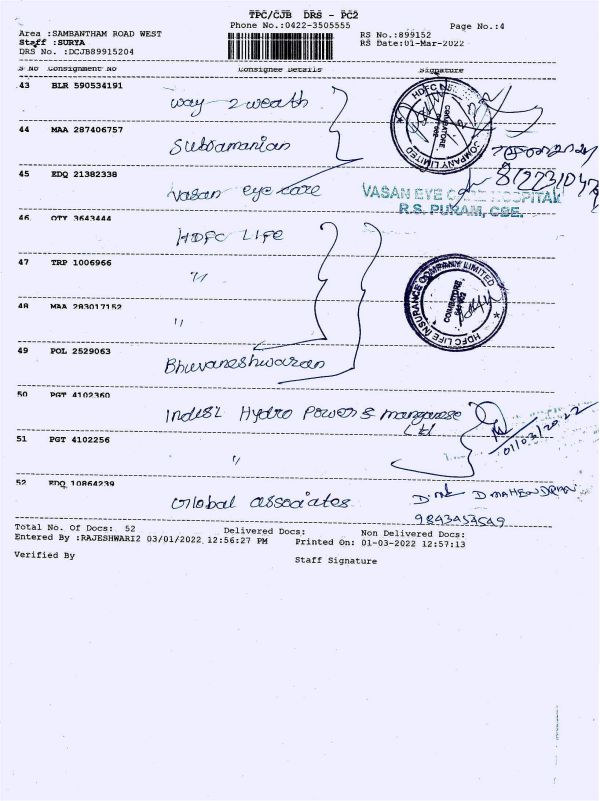 TPC/CJB DRS - PC2
Phone No.:0422-3505555
Page No.:4
Area :SAMBANTHAM ROAD WEST
Staff :SURYA
DRS No. :DCJB89915204
RS No.:899152
RS Date:01-Mar-2022
S No Consignment No Consignee Details Signature
43 BLR 590534191 way 2 wealth
44 MAA 287406757 Subramanian
45 EDQ 21382338 vasan eye care
VASAN EYE CARE HOSPITAL
R.S. PURAM, CBE.
46 OTY 3643444 HDFC Life
47 TRP 1006966 "
48 MAA 283017152 "
HDFC LIFE INSURANCE COMPANY LIMITED
COIMBATORE
49 POL 2529063 Bhuvaneshwaran
50 PGT 4102360 Indsil Hydro Power & manganese Ltd
01/03/2022
51 PGT 4102256 "
52 EDQ 10864239 Global associates
D MAHENDRAN
9843454549
Total No. Of Docs: 52 Delivered Docs: Non Delivered Docs:
Entered By :RAJESHWARI2 03/01/2022 12:56:27 PM Printed On: 01-03-2022 12:57:13
Verified By Staff Signature